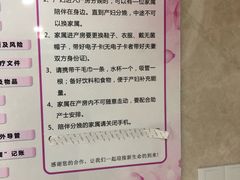 陪伴在身边。直到产妇分娩，中途不可
以换家属。
2、家属进产房要更换鞋子、衣服、戴无菌
帽子，带好电子卡(无电子卡者带好夫妻
双方身份证)。
3、请携带干毛巾一条，水杯一个，吸管一
根；备好饮料和食物，便于产妇补充能
量。
4、家属在产房内不可随意走动，要配合助
产士安排。
5、陪伴分娩的家属请关闭手机。
感谢您的合作，让我们一起迎接新生命的到来!
及风险
疗文件
及物品
外导管
”记账